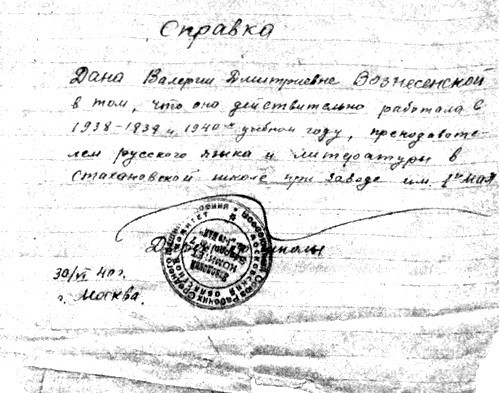 Справка
Дана Валерии Дмитриевне Вознесенской
в том, что она действительно работала в
1938-1939 и 1940м учебном году, преподавате-
лем русского языка и литературы в
Стахановской школе при заводе им. 1го мая
Директор школы
30/VI 40 г.
г. Москва.